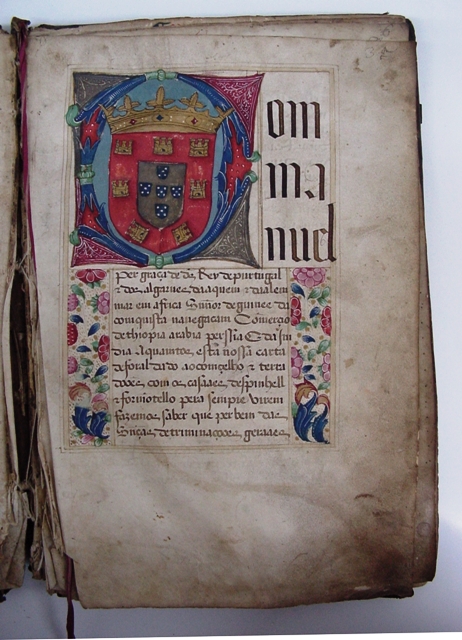 Dom
ma
nuel
per graça de ds, Rey de purtugal
& dos algarves daaquem & daalem
mar em africa Sñor de guinee & da
comquista navegacam Comercio
de thiopia arabia persſia & da jm
dia Aquamtos, esta nossa carta
de foral dado ao comçelho & terra
com os casaaes, despinhell
& fornotello pera sempre virem
fazemos, saber que per bem das
Snças, detriminaçoões, geraaes,